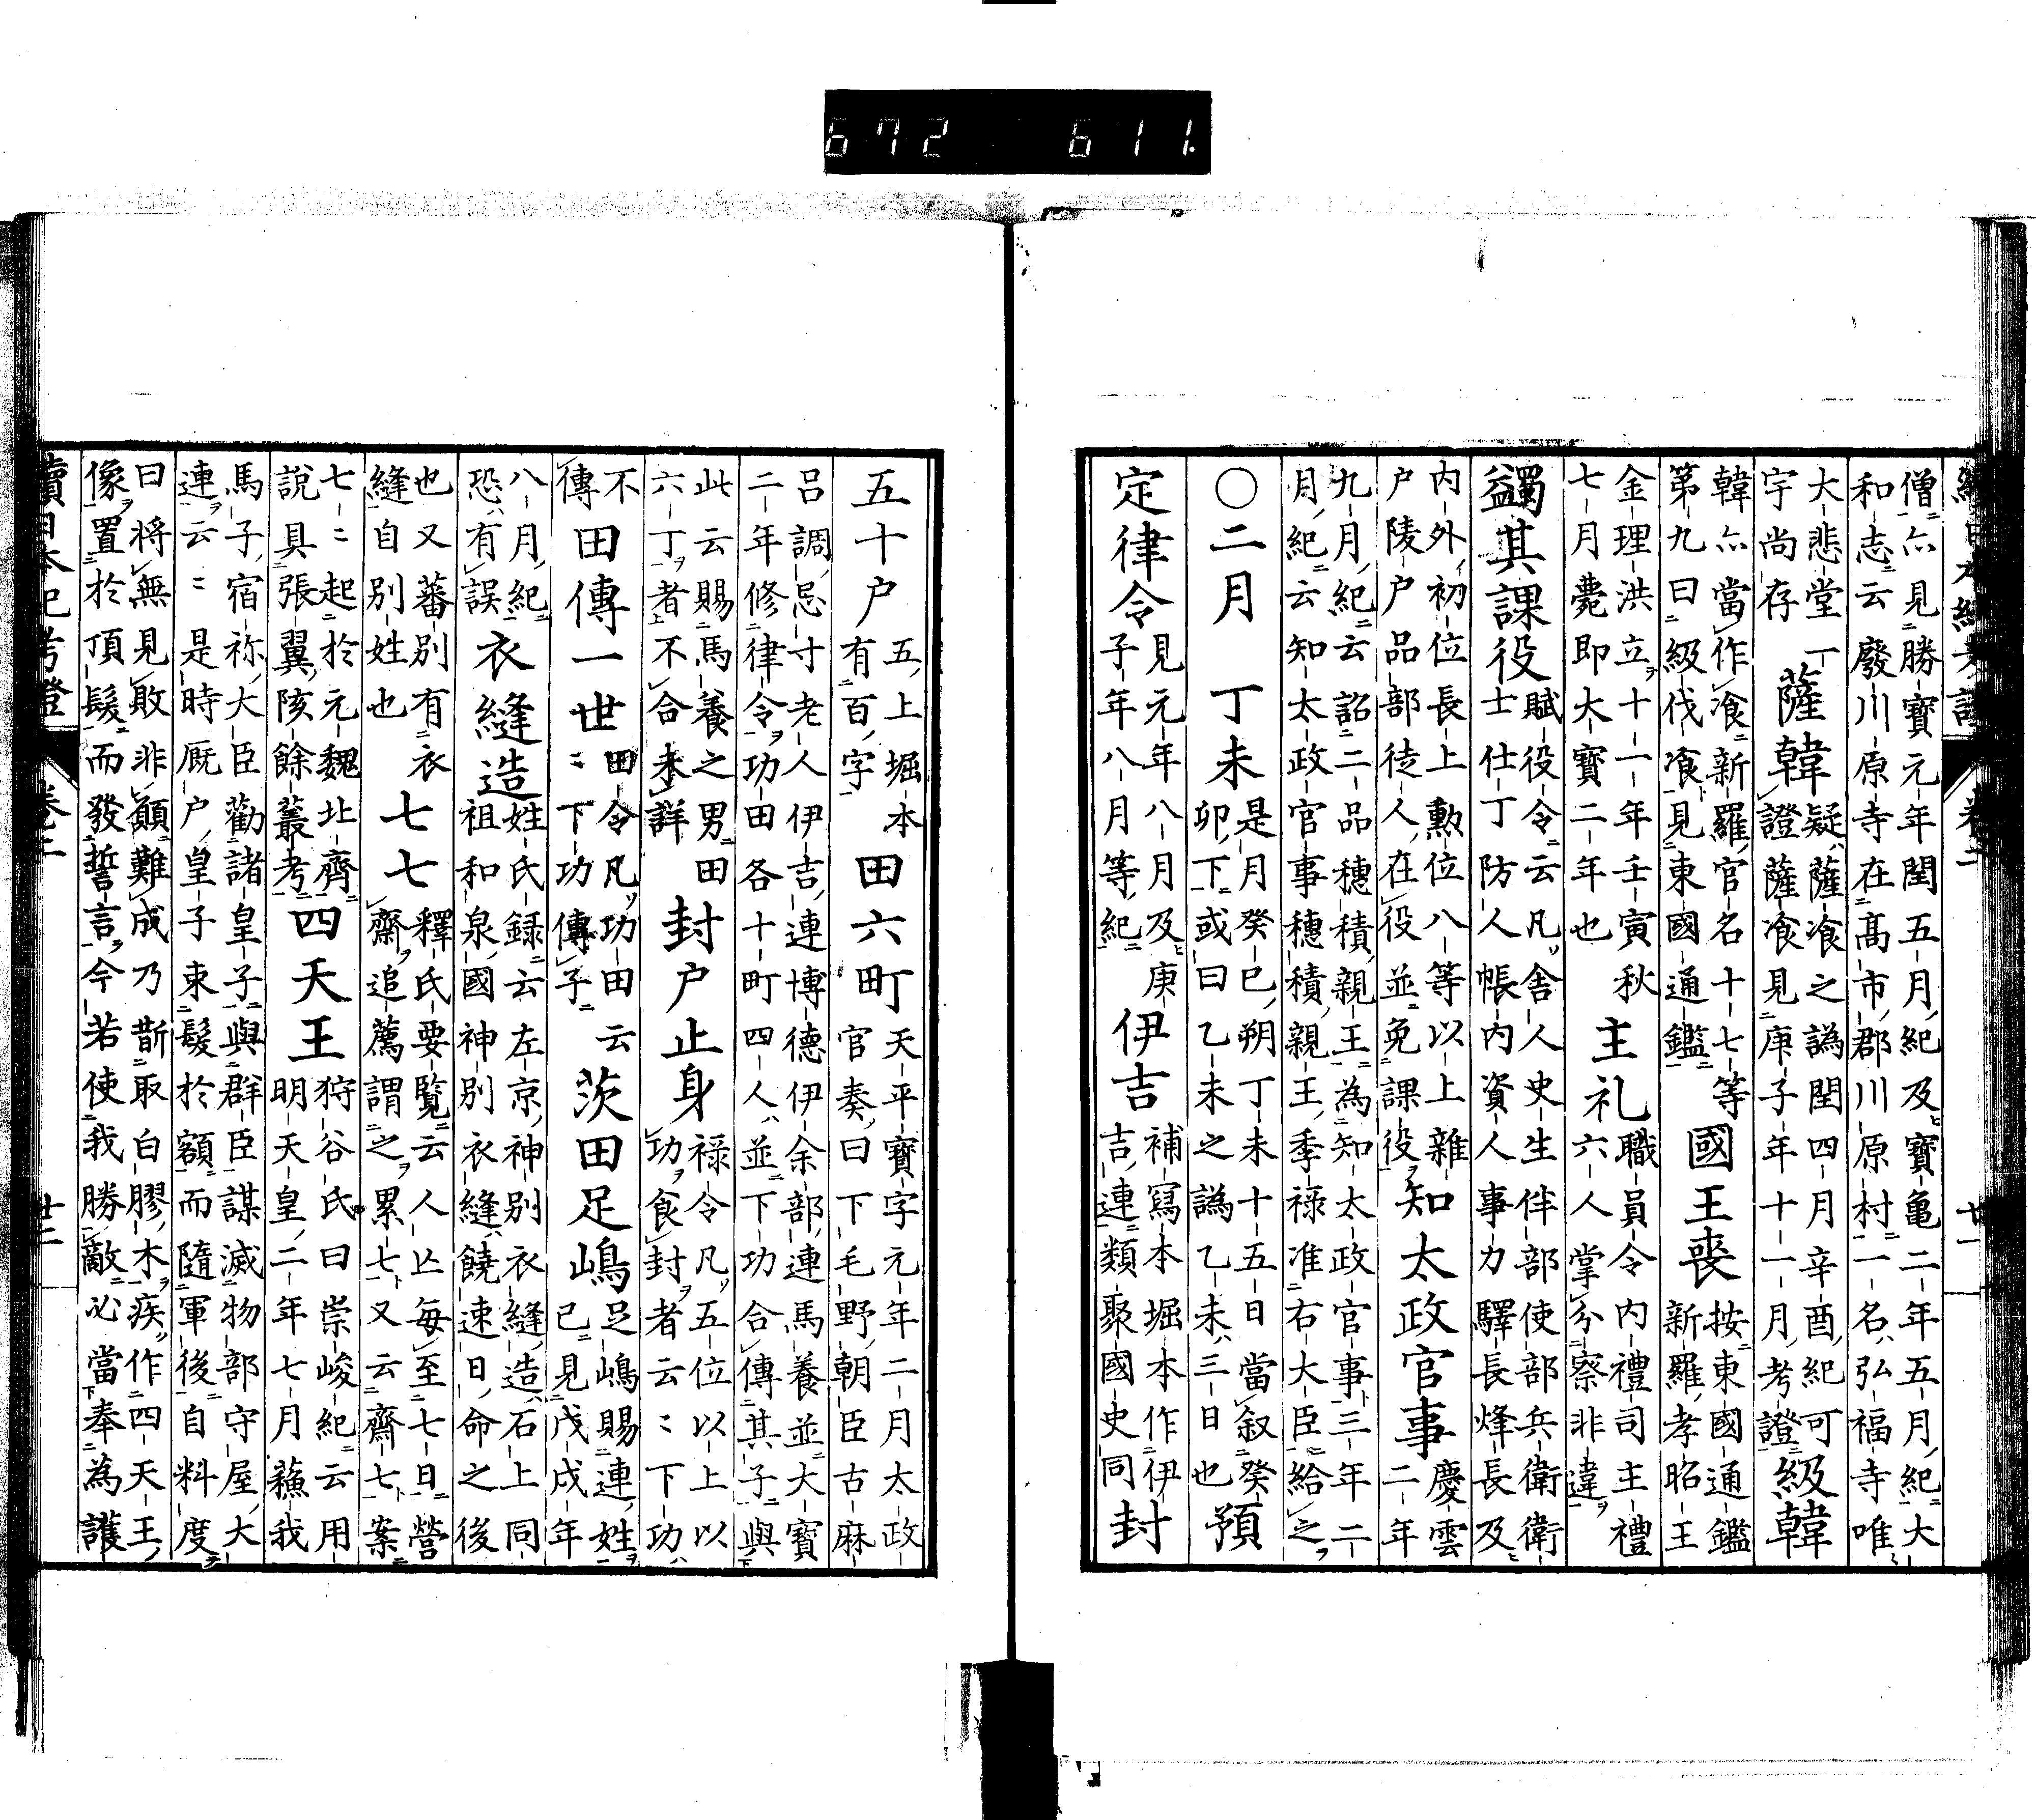 續日本紀考證 卷二 廿一
僧亦見勝寶元年閏五月紀及寶亀二年五月紀大
和志云廢川原寺在高市郡川原村一名弘福寺唯
大悲堂一
宇尚存
薩韓
疑薩飡之譌閏四月辛酉紀可
證薩飡見庚子年十一月考證
級韓
韓亦當作飡新羅官名十七等
第九曰級伐飡見東國通鑑
國王喪
按東國通鑑
新羅孝昭王
金理洪立十一年壬寅秋
七月薨即大寶二年也
主礼
職員令内禮司主禮
六人掌分察非違
蠲其課役
賦役令云凡舎人史生伴部使部兵衛衛
士仕丁防人帳内資人事力驛長烽長及
内外初位長上勲位八等以上雜
户陵户品部徒人在役並免課役
知太政官事
慶雲
二年
九月紀云詔二品穗積親王為知太政官事三年二
月紀云知太政官事穗積親王季禄准右大臣給之
○二月 丁未
是月癸巳朔丁未十五日當叙癸
卯下或曰乙未之譌乙未三日也
預
定律令
見元年八月及庚
子年八月等紀
伊吉
補寫本堀本作伊
吉連類聚國史同
封
五十户
五上堀本
有百字
田六町
天平寶字元年二月太政
官奏曰下毛野朝臣古麻
吕調忌寸老人伊吉連博德伊余部連馬養並大寶
二年修律令功田各十町四人並下功合傳其子與
此云賜馬養之男田
六丁者不合未詳
封户止身
禄令凡五位以上以
功食封者云〻下功
不
傳
田傳一世
田令凡功田云
〻下功傳子
茨田足嶋
足嶋賜連姓
已見戊戌年
八月紀
恐有誤
衣縫造
姓氏録云左京神別衣縫造石上同
祖和泉國神別衣縫饒速日命之後
也又蕃別有衣
縫自別姓也
七七
釋氏要覧云人亡每至七日營
齋追薦謂之累七又云齋七案
七〻起於元魏北齊
説具張翼陔餘叢考
四天王
狩谷氏曰崇峻紀云用
明天皇二年七月蘓我
馬子宿祢大臣勸諸皇子與群臣謀滅物部守屋大
連云〻是時厩户皇子束髮於額而隨軍後自料度
曰將無見敗非願難成乃斮取白膠木疾作四天王
像置於頂髮而發誓言今若使我勝敵必當奉為護
續日本紀考證 卷二 廿二
672 611.